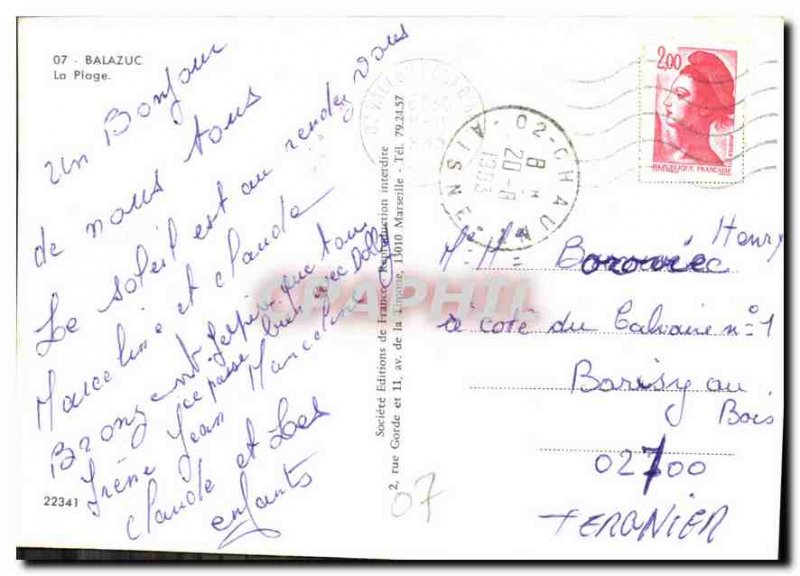 07 - BALAZUC
La Plage.
Un Bonjour
de nous tous
Le soleil est au rendez vous
Marceline et claude
Bronzent J'espère que tous
ce passe bien avec
Irène Jean Marceline
claude et Les
enfants
22341
Société Editions de France - Reproduction interdite
2, rue Gorde et 11, av. de la Timone, 13010 Marseille - Tél. 79.24.57
02-CHAUNY
8 H
20-8
1983
AISNE
2,00
REPUBLIQUE FRANÇAISE
Henry
à coté du Calvaire n°1
Barisy au
Bois
02700
TERGNIER
07